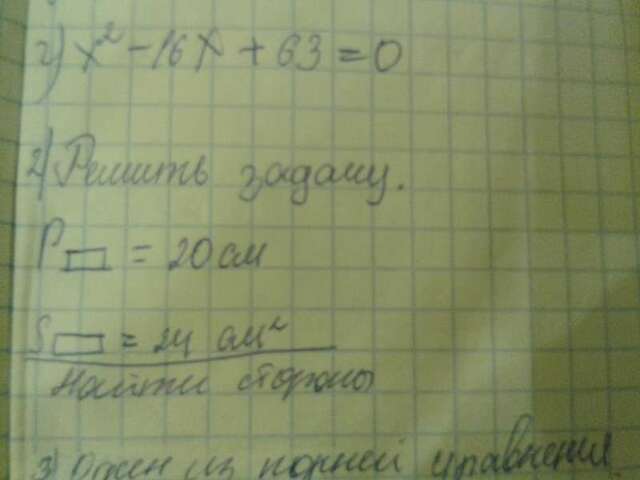 г) x² - 16x + 63 = 0
2) Решить задачу.
P▭ = 20 см
S▭ = 24 см²
Найти стороны
3) Один из корней уравнения